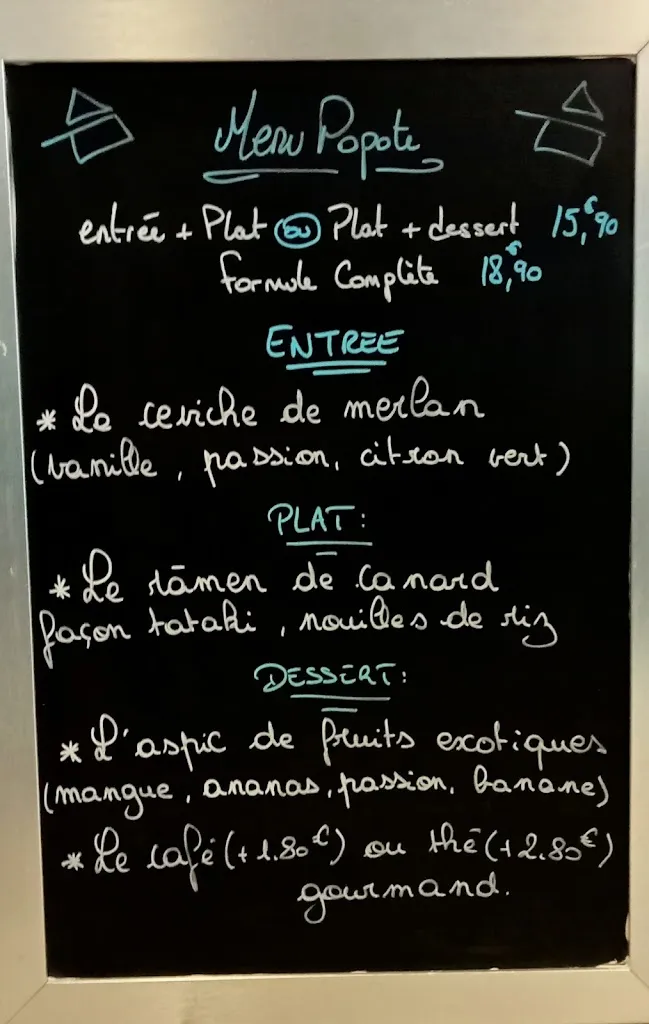 Menu Popote
entrée + Plat ou Plat + dessert 15,€90
formule Complète 18,€90
ENTREE
* Le ceviche de merlan
(vanille, passion, citron vert)
PLAT:
* Le rāmen de Canard
façon tataki, nouilles de riz
DESSERT:
* L'aspic de fruits exotiques
(mangue, ananas, passion, banane)
* Le café (+ 1.80€) ou thé (+ 2.80€)
gourmand.